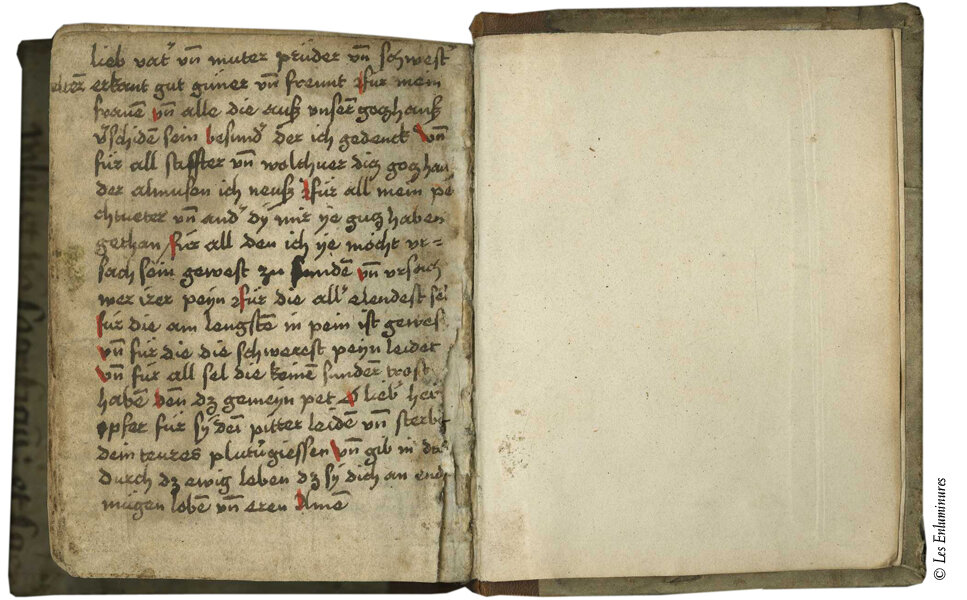 lieb vat' vn̄ muter prüder vn̄ schwest'
eltern̄ erkant gut güner vn̄ freunt für mein
frauē vn̄ alle die auß vnser̄ goczhauß
v'schidē sein besund' der ich gedenck vn̄
für all stiffter vn̄ wolthuer diß goczhau
der almusen ich neuß für all mein pe
chtueter vn̄ and' dÿ mir ye gucz haben
gethan für all den ich ye möcht vr=
sach sein gewest zu sundē vn̄ vrsach
wer irer peyn für die all' elendest sel
für die am lengstē in pein ist gewes
vn̄ für die die schwerest peyn leidet
vn̄ für all sel die keinē sunder trost
habē den dz gemeyn pet O lieb' her
opfer für sÿ dei pitter leidē vn̄ sterbē
dein teures plutu'giessen vn̄ gib in
durch dz ewig leben dz sÿ dich an end
mügen lobē vn̄ eren Amē
© Les Enluminures